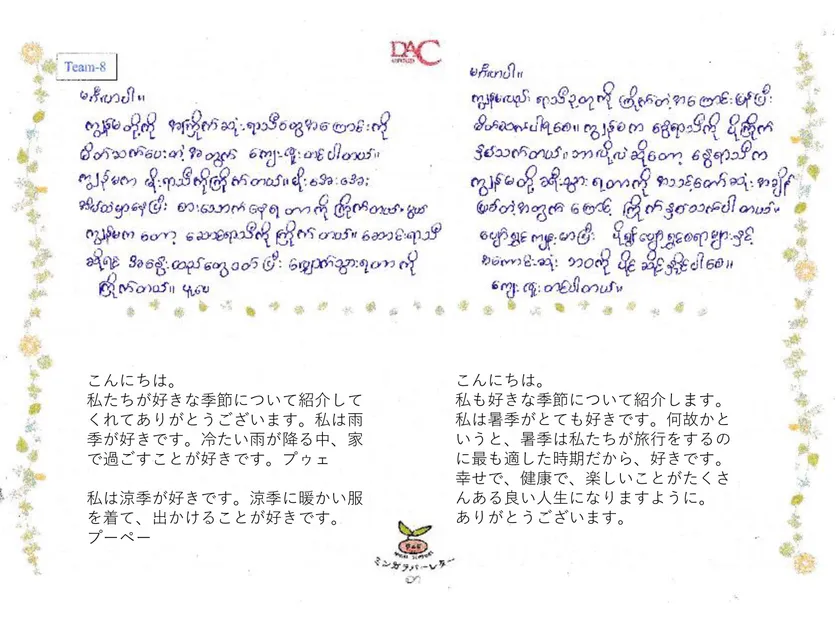 DAC
Team-8
မင်္ဂလာပါ။
ကျွန်မတို့ကို အကြိုက်ဆုံးရာသီတွေအကြောင်းကို
မိတ်ဆက်ပေးတဲ့အတွက် ကျေးဇူးတင်ပါတယ်။
ကျွန်မက မိုးရာသီကိုကြိုက်တယ်။ မိုးအေးအေး
အိမ်ထဲမှာနေပြီး စားသောက်နေရတာကို ကြိုက်တယ်။
ကျွန်မကတော့ ဆောင်းရာသီကို ကြိုက်တယ်။ ဆောင်းရာသီ
ဆိုရင် အနွေးထည်တွေဝတ်ပြီး လျှောက်သွားရတာကို
ကြိုက်တယ်။
မင်္ဂလာပါ။
ကျွန်မလည်း ရာသီဥတုကို ကြိုက်တဲ့အကြောင်း ပြန်ပြီး
မိတ်ဆက်ပါရစေ။ ကျွန်မက နွေရာသီကို ပိုကြိုက်
နှစ်သက်တယ်။ ဘာလို့လဲဆိုတော့ နွေရာသီက
ကျွန်မတို့ ခရီးသွားရတာကို အသင့်တော်ဆုံး အချိန်
ဖြစ်တဲ့အတွက်ကြောင့် ကြိုက်နှစ်သက်ပါတယ်။
ပျော်ရွှင်ကျန်းမာပြီး ပျော်ရွှင်စရာများနှင့်
အကောင်းဆုံး ဘဝကို ပိုင်ဆိုင်နိုင်ပါစေ။
ကျေးဇူးတင်ပါတယ်။
こんにちは。
私たちが好きな季節について紹介して
くれてありがとうございます。私は雨
季が好きです。冷たい雨が降る中、家
で過ごすことが好きです。プゥェ
私は涼季が好きです。涼季に暖かい服
を着て、出かけることが好きです。
プーペー
こんにちは。
私も好きな季節について紹介します。
私は暑季がとても好きです。何故かと
いうと、暑季は私たちが旅行をするの
に最も適した時期だから、好きです。
幸せで、健康で、楽しいことがたくさ
んある良い人生になりますように。
ありがとうございます。
ミンガラバーレター